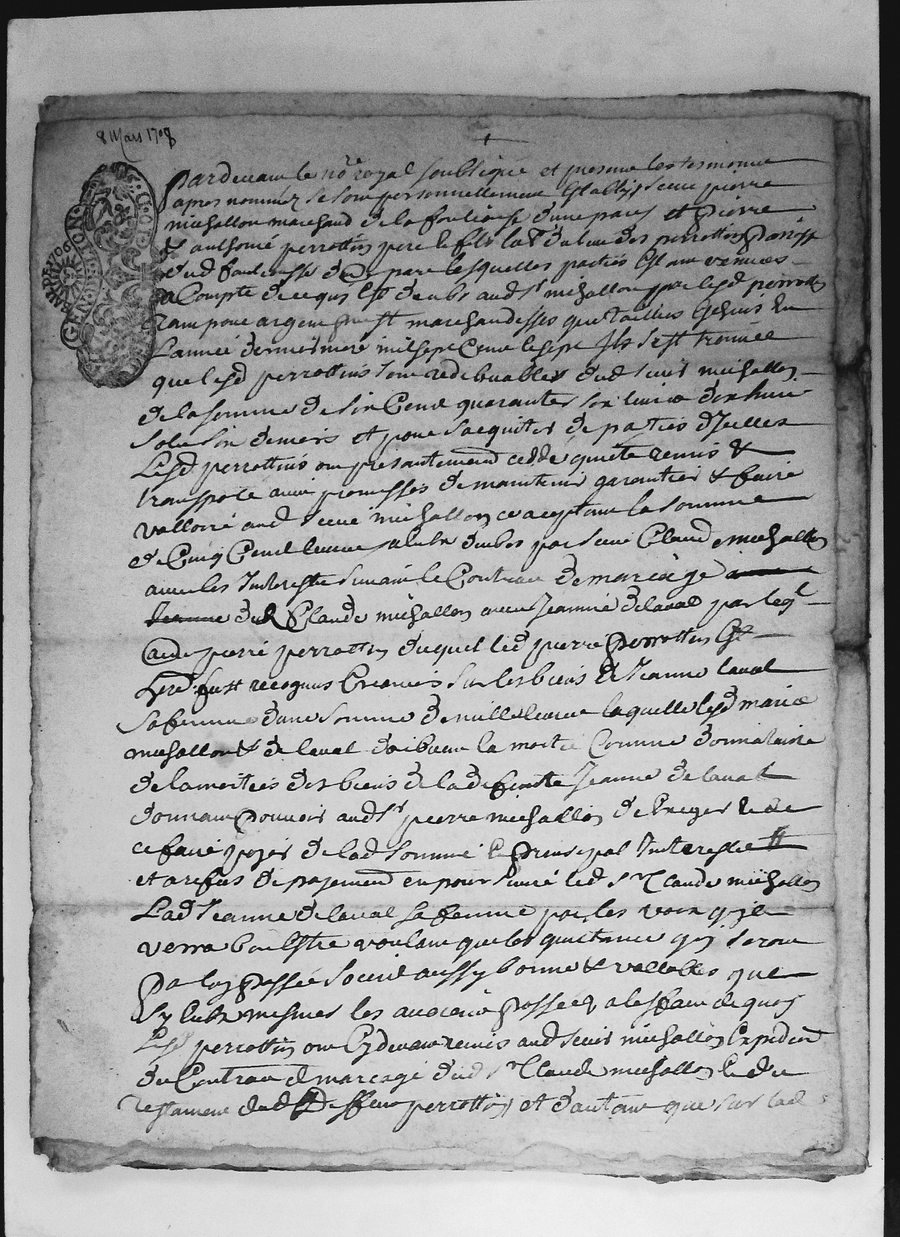 8 Mars 1708
GEN. DE LION
Pardevant le no.re royal soubsigné et presens les tesmoins
apres nommez se sont personnellement establys sieur pierre
michallon marchand de la fouliouse d'une part et Pierre
& anthoine perrottin pere & fils lab.r du lieu des perrottin paroisse
dud fouliousse d'autre part lesquelles parties estant venues
a Compte de ce quy est deub aud s.r michallon par lesd perrottin
tant pour argent presté marchandisses que tailles
l'année derniere mil sept Cent et sept Ils s'est trouvée
que lesd perrottins sont redebvables aud sieur michallon
de la somme de six Cent quarantes six livres dix huit
sols six deniers et pour s'acquiter de parties d'Icelles
Lesd perrottins ont presantement ceddé quitté remis &
transporté avec promesses de maintenir garantir & faire
valloire aud sieur michallon ce aceptant la somme
de Cinq Cent livres a eux deubs par sieur Claude michallon
avec les Intherests suivant le Contract de mariage
dud Claude michallon avec Jeanne delaval par leql
led pierre perrottin duquel led pierre perrottin
fust recognus Creancié sur les biens de Jeanne laval
sa femme d'une somme de mille livres laquelle lesd mariés
michallon & delaval doibvent la moitié Comme donnataire
de la moitiés des biens de lad deffunte Jeanne delaval
donnant pouvoir aud s.r pierre michallon de l'exiger & de
ce faire payer de lad somme en principal Intherests
et a refus de payement en poursuivre led s.r Claude michallon
Lad Jeanne delaval sa femme par les voix qu'il
verra bon estre voulant que les quittance quy seront
Par luy Passée soient aussy bonne & vallables que
sy eux mesmes les avoient Passée & a l'esfaict de quoy
Lesd perrottin ont Cydevant remis aud sieur michallon Expedition
du Contract de mariage dud s.r Claude michallon & du
testament perrottin et d'autant que sur lad